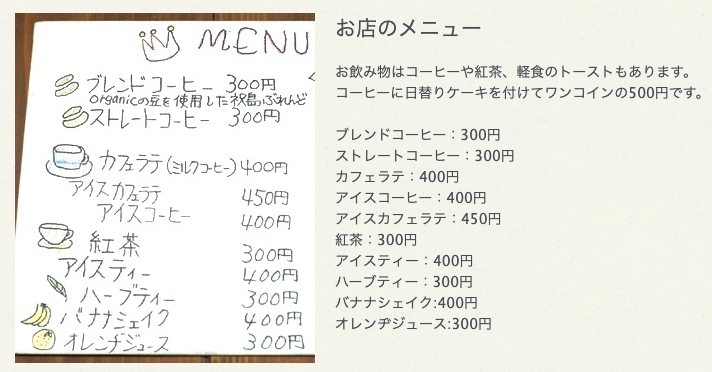 MENU
ブレンドコーヒー 300円
organicの豆を使用した祝島ぶれんど
ストレートコーヒー 300円
カフェラテ(ミルクコーヒー) 400円
アイスカフェラテ 450円
アイスコーヒー 400円
紅茶 300円
アイスティー 400円
ハーブティー 300円
バナナシェイク 400円
オレンヂジュース 300円
お店のメニュー
お飲み物はコーヒーや紅茶、軽食のトーストもあります。
コーヒーに日替りケーキを付けてワンコインの500円です。
ブレンドコーヒー：300円
ストレートコーヒー：300円
カフェラテ：400円
アイスコーヒー：400円
アイスカフェラテ：450円
紅茶：300円
アイスティー：400円
ハーブティー：300円
バナナシェイク:400円
オレンヂジュース:300円